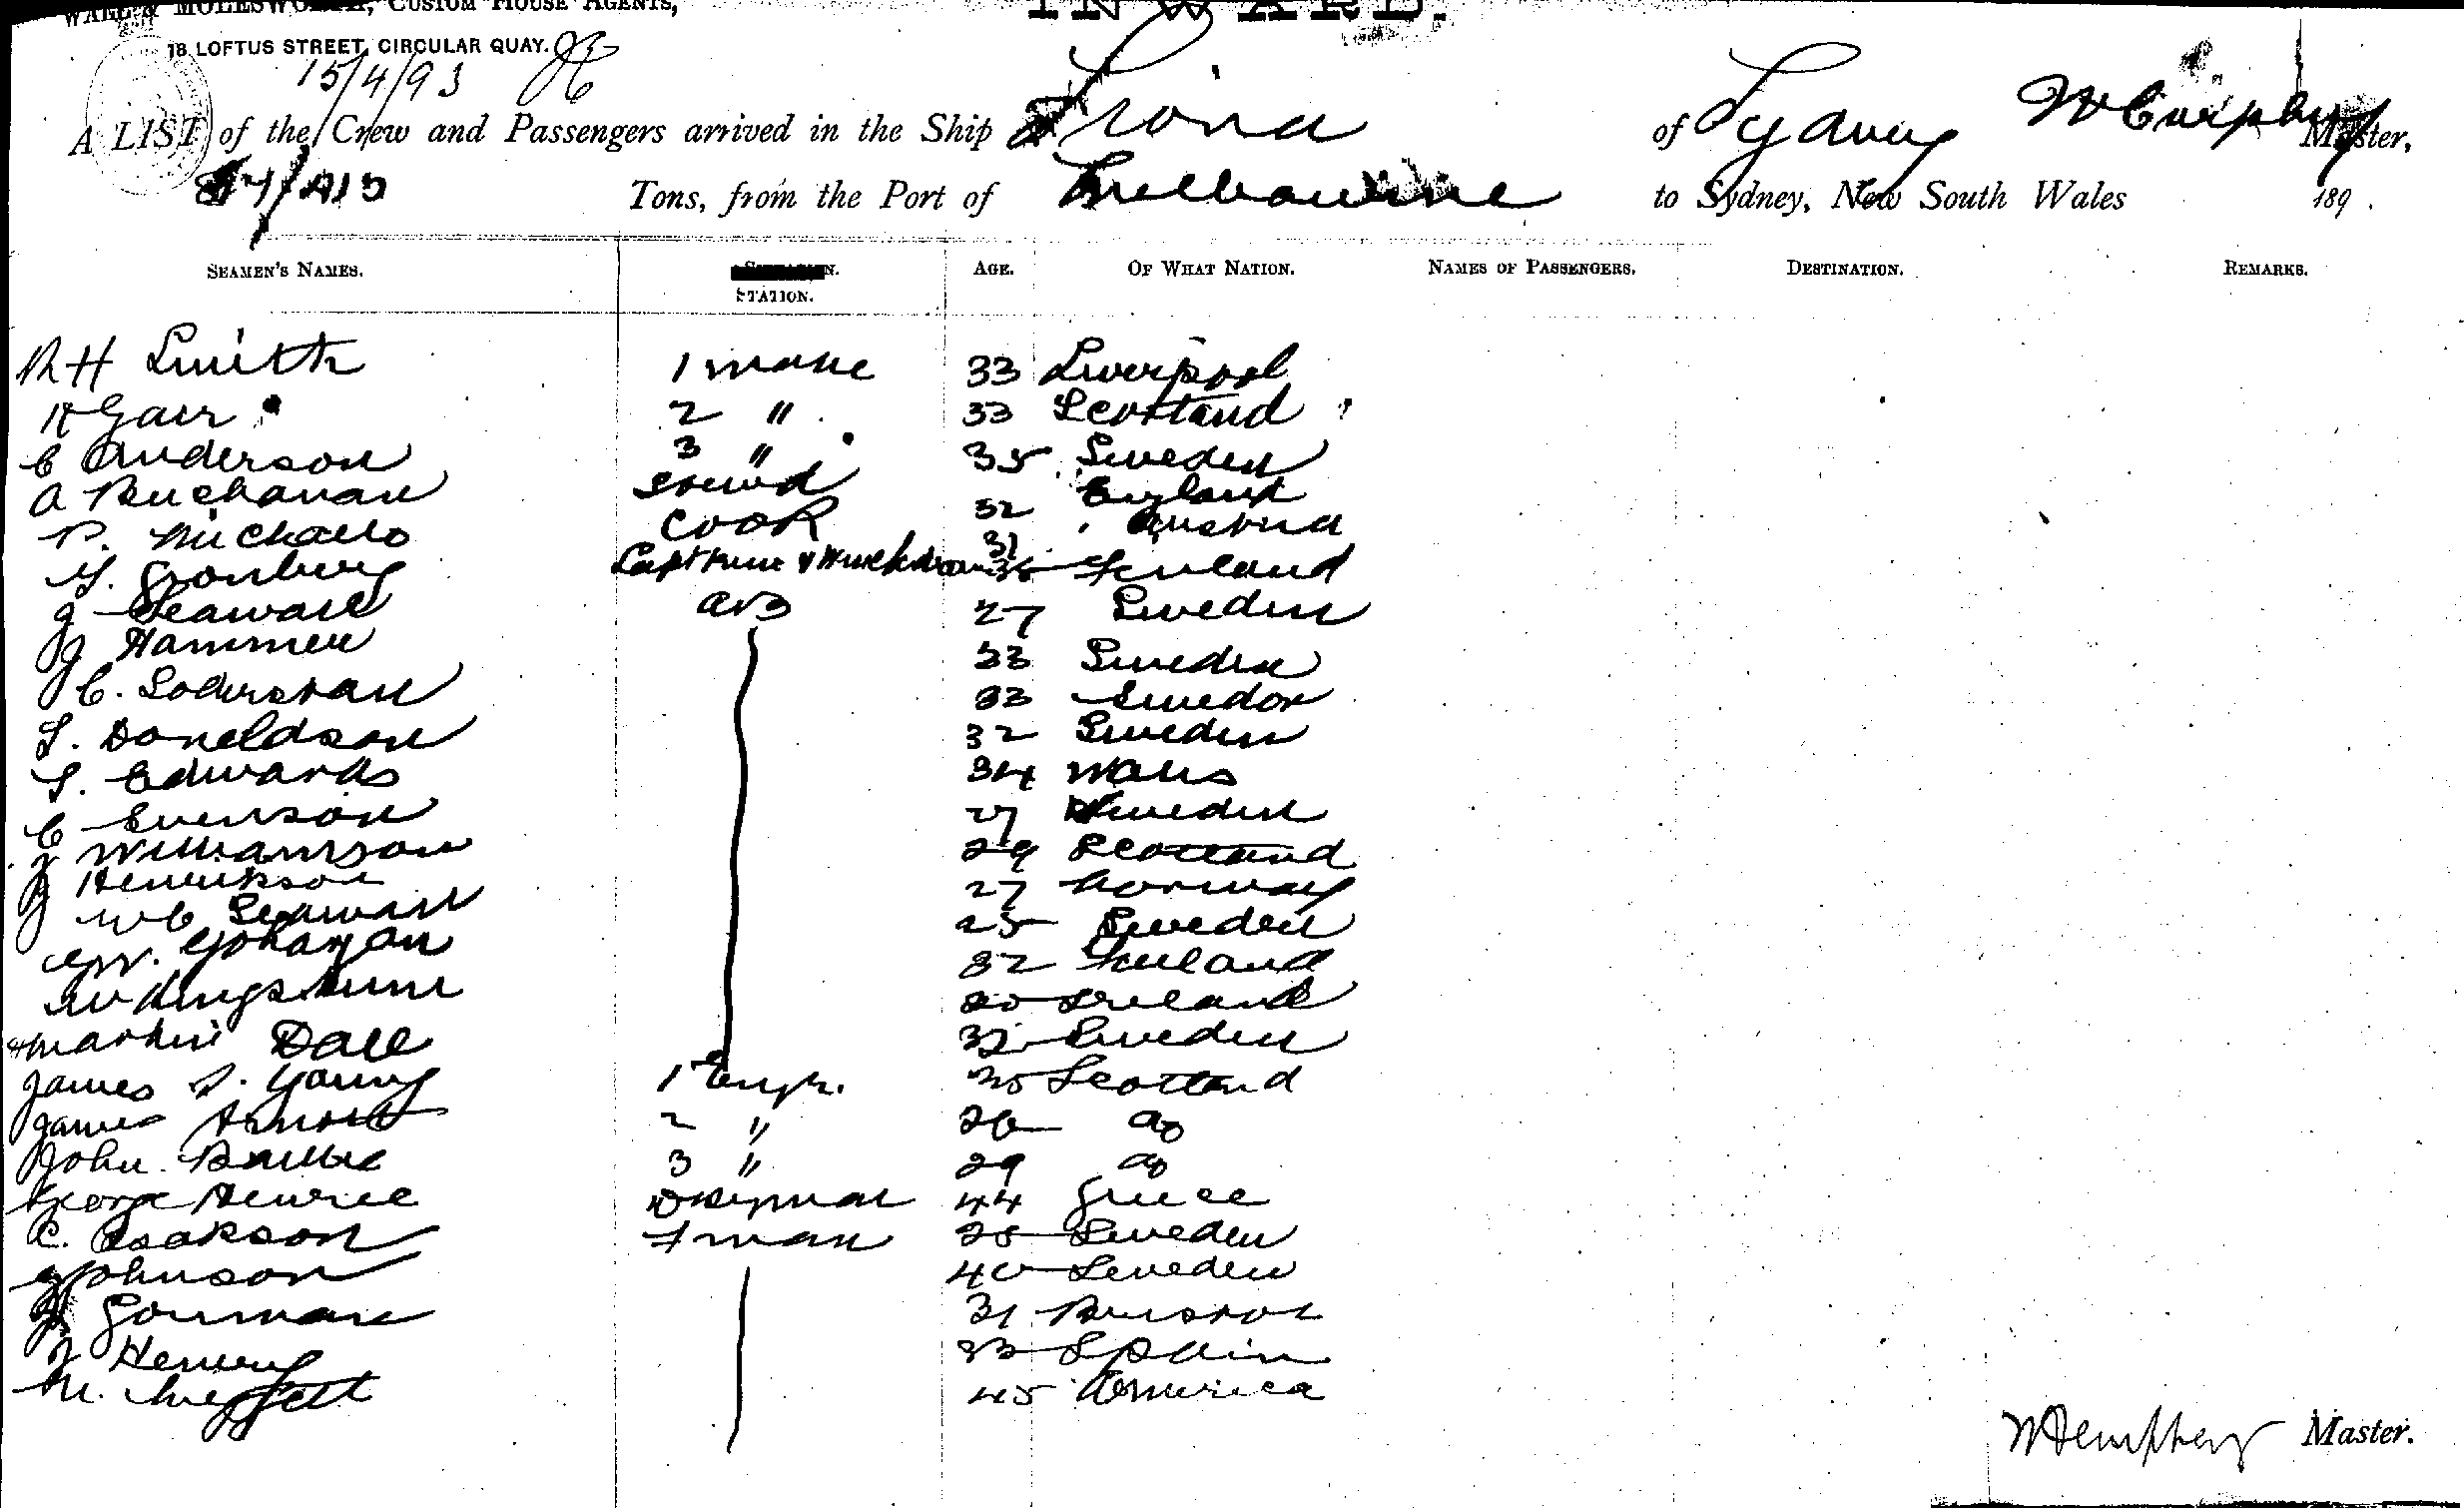 WALL & MOLESWORTH, CUSTOM HOUSE AGENTS,
INWARD.
18 LOFTUS STREET, CIRCULAR QUAY.
15/4/93
A LIST of the Crew and Passengers arrived in the Ship Fiona of Sydney Master,
Tons, from the Port of Melbourne to Sydney, New South Wales 189 .
SEAMEN'S NAMES. STATION. AGE. OF WHAT NATION. NAMES OF PASSENGERS. DESTINATION. REMARKS.
R H Smith 1 mate 33 Liverpool
Gair 2 " 33 Scotland
C Anderson 3 " 35 Sweden
A Buchanan 32 England
P. Michallo Cook 31 Austria
Gronberg Finland
J Seawall AB 27 Sweden
J Hammer 33 Sweden
C. Soderstan 33 Sweden
S. Donaldson 32 Sweden
S. Edwards 34 Wales
C Evenson 27 Sweden
J Williamson 29 Scotland
J Henrikson 27 Norway
W C Seawall 25 Sweden
32
Ireland
Martin Dall Sweden
James S. Young 1 Engr. Scotland
James Arnott 2 " 26 do
John 3 " 29 do
George Henrie 44 Greece
C. Isakson F man 28 Sweden
J Johnson 40 Sweden
Gorman 31 Bristol
J Henery 33 Spain
M. 45 America
Master.